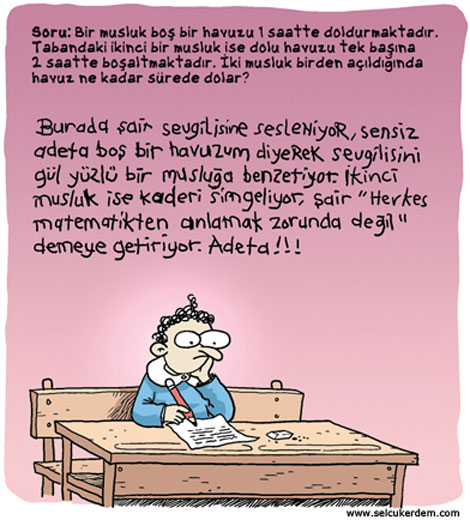 Soru: Bir musluk boş bir havuzu 1 saatte doldurmaktadır.
Tabandaki ikinci bir musluk ise dolu havuzu tek başına
2 saatte boşaltmaktadır. İki musluk birden açıldığında
havuz ne kadar sürede dolar?
Burada şair sevgilisine sesleNiyoR, sensiz
adeta boş bir havuzum diyeRek sevgilisini
gül yüzlü bir musluğa benzetiyor. İkinci
musluk ise kaderi simgeliyor, şair "Herkes
matematikten anlamak zorunda değil"
demeye getiriyor. Adeta!!!
www.selcukerdem.com